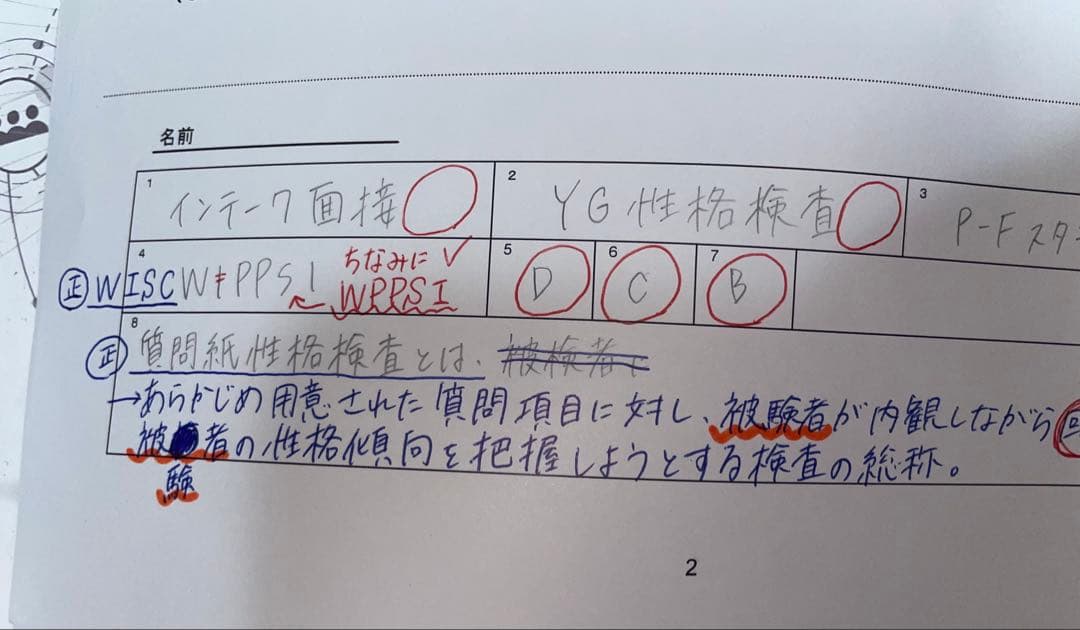 名前
1 インテーク面接
2 YG性格検査
3 P-Fスタ
4 ちなみに
正 WISC WPPSI WPPSI
5 D
6 C
7 B
8
正 質問紙性格検査とは、被検者
→あらかじめ用意された質問項目に対し、被験者が内観しながら回
被者の性格傾向を把握しようとする検査の総称。
験
2